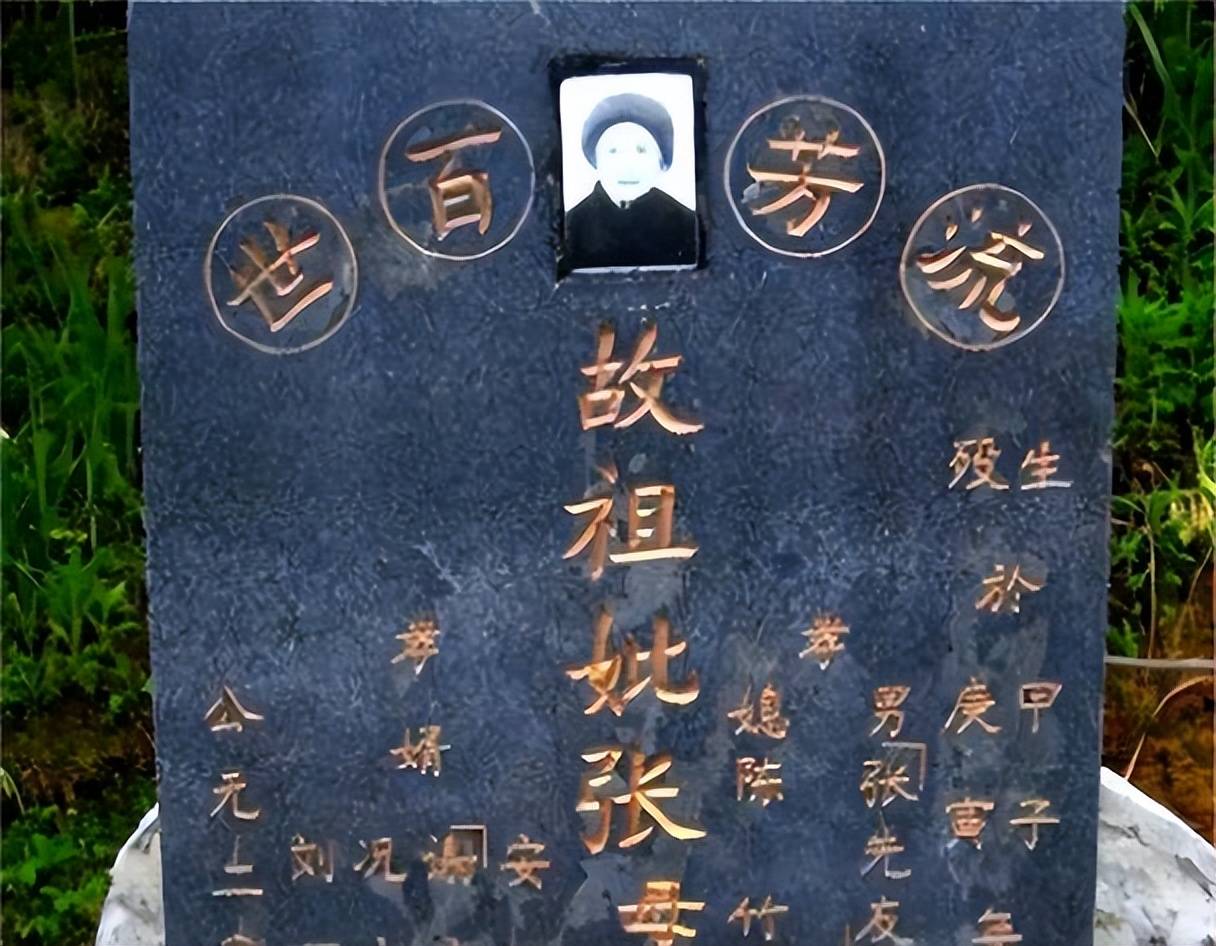 流芳百世
生殁於甲子庚寅年
孝
男张先友
媳陈竹
故祖妣张母
孝婿
安
况
刘
公元二